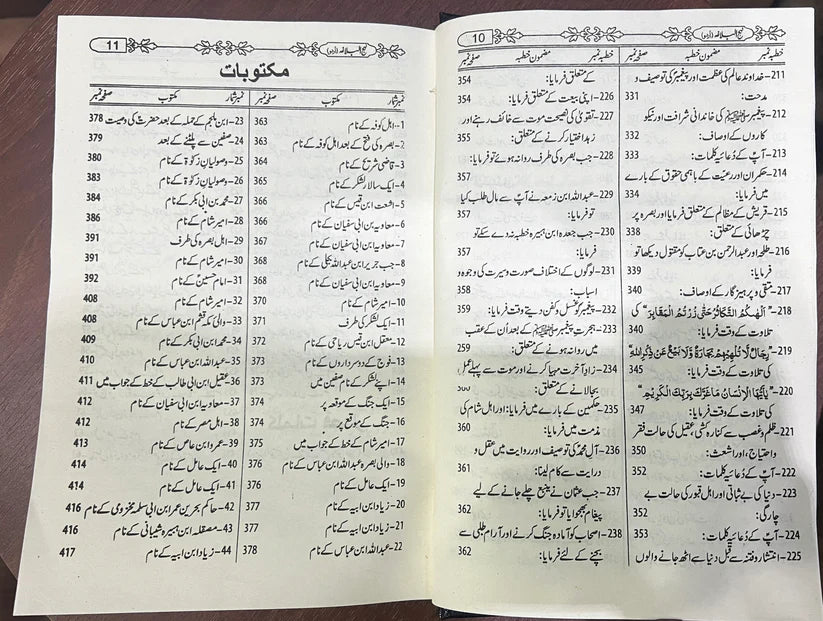 10 نہج البلاغہ (اردو)
خطبہ نمبر مضمون خطبہ صفحہ نمبر
211-خداوند عالم کی عظمت اور پیغمبرؐ کی توصیف و
مدحت: 331
212-پیغمبر ﷺ کی خاندانی شرافت اور نیکو
کاروں کے اوصاف: 332
213-آپؑ کے دُعائیہ کلمات: 333
214-حکمران اور رعیت کے باہمی حقوق کے بارے
میں فرمایا: 334
215-قریش کے مظالم کے متعلق فرمایا اور بصرہ پر
چڑھائی کے متعلق: 338
216-طلحہ اور عبد الرحمن بن عتاب کو مقتول دیکھا تو
فرمایا: 339
217-متقی و پرہیز گار کے اوصاف: 340
218-”اَلْهٰىكُمُ التَّكَاثُرُ حَتّٰى زُرْتُمُ الْمَقَابِرَ“ کی
تلاوت کے وقت فرمایا: 340
219-”رِجَالٌ لَّا تُلْهِيْهِمْ تِجَارَةٌ وَّلَا بَيْعٌ عَنْ ذِكْرِ اللهِ“
کی تلاوت کے وقت فرمایا: 345
220-”يٰٓاَيُّهَا الْاِنْسَانُ مَا غَرَّكَ بِرَبِّكَ الْكَرِيْمِ“
کی تلاوت کے وقت فرمایا: 347
221-ظلم و غصب سے کنارہ کشی عقیل کی حالت فقر
واحتیاج، اور اشعث: 350
222-آپؑ کے دُعائیہ کلمات: 352
223-دنیا کی بے ثباتی اور اہل قبور کی حالت بے
چارگی: 352
224-آپؑ کے دُعائیہ کلمات: 353
225-انتشار و فتنہ سے قبل دنیا سے اٹھ جانے والوں
خطبہ نمبر مضمون خطبہ صفحہ نمبر
کے متعلق فرمایا: 354
226-اپنی بیعت کے متعلق فرمایا: 354
227-تقویٰ کی نصیحت موت سے خائف رہنے اور
زہد اختیار کرنے کے متعلق: 355
228-جب بصرہ کی طرف روانہ ہوئے تو فرمایا:
357
229-عبداللہ ابن زمعہ نے آپؑ سے مال طلب کیا
تو فرمایا: 357
230-جب جعدہ ابن ہبیرہ خطبہ نہ دے سکے تو
فرمایا: 357
231-لوگوں کے اختلاف صورت و سیرت کی وجوہ و
اسباب: 358
232-پیغمبرؐ کو غسل و کفن دیتے وقت فرمایا: 359
233-ہجرت پیغمبر ﷺ کے بعد اُن کے عقب
میں روانہ ہونے کے متعلق: 259
234-زاد آخرت مہیا کرنے اور موت سے پہلے عمل
بجا لانے کے متعلق:
235-حکمین کے بارے میں فرمایا: اور اہل شام کی
مذمت میں فرمایا: 360
236-آلِ محمدؐ کی توصیف اور روایت میں عقل و
درایت سے کام لینا: 361
237-جب عثمان نے ینبع چلے جانے کے لیے
پیغام بھجوایا تو فرمایا: 362
238-اصحاب کو آمادہ جنگ کرنے اور آرام طلبی سے
بچنے کے لئے فرمایا: 362
11 نہج البلاغہ (اردو)
مکتوبات
نمبر شمار مکتوب صفحہ نمبر
1-اہل کوفہ کے نام 363
2-بصرہ کی فتح کے بعد اہل کوفہ کے نام 363
3-قاضی شریح کے نام 364
4-ایک سالار لشکر کے نام 365
5-اشعث ابن قیس کے نام 366
6-معاویہ بن ابی سفیان کے نام 366
7-معاویہ بن ابی سفیان کے نام 367
8-جب جریر ابن عبداللہ بجلی کے نام 368
9-معاویہ بن ابی سفیان کے نام 368
10-امیر شام کے نام 370
11-ایک لشکر کی طرف 371
12-معقل ابن قیس ریاحی کے نام 372
13-فوج کے دو سرداروں کے نام 373
14-اپنے لشکر کے نام صفین میں 373
15-ایک جنگ کے موقعہ پر 374
16-جنگ کے موقع پر 374
17-امیر شام کے خط کے جواب میں 375
18-والی بصرہ عبداللہ ابن عباس کے نام 376
19-ایک عامل کے نام 376
20-زیاد ابن ابیہ کے نام 377
21-زیاد ابن ابیہ کے نام 377
22-عبداللہ ابن عباس کے نام 378
نمبر شمار مکتوب صفحہ نمبر
23-ابن ملجم کے حملہ کے بعد حضرتؑ کی وصیت 378
24-صفین سے پلٹنے کے بعد 379
25-وصولیان زکوٰۃ کے نام 380
26-وصولیان زکوٰۃ کے نام 383
27-محمد بن ابی بکر کے نام 384
28-امیر شام کے نام 386
29-اہل بصرہ کی طرف 391
30-امیر شام کے نام 391
31-امام حسینؑ کے نام 392
32-امیر شام کے نام 408
33-والی مکہ قثم ابن عباس کے نام 408
34-محمد ابن ابی بکر کے نام 409
35-عبداللہ ابن عباس کے نام 410
36-عقیل ابن ابی طالب کے خط کے جواب میں 411
37-معاویہ ابن ابی سفیان کے نام 412
38-اہل مصر کے نام 412
39-عمرو ابن عاص کے نام 413
40-ایک عامل کے نام 414
41-ایک عامل کے نام 414
42-حاکم بحرین عمر ابن ابی سلمہ مخزومی کے نام 416
43-مصقلہ ابن ہبیرہ شیبانی کے نام 416
44-زیاد ابن ابیہ کے نام 417